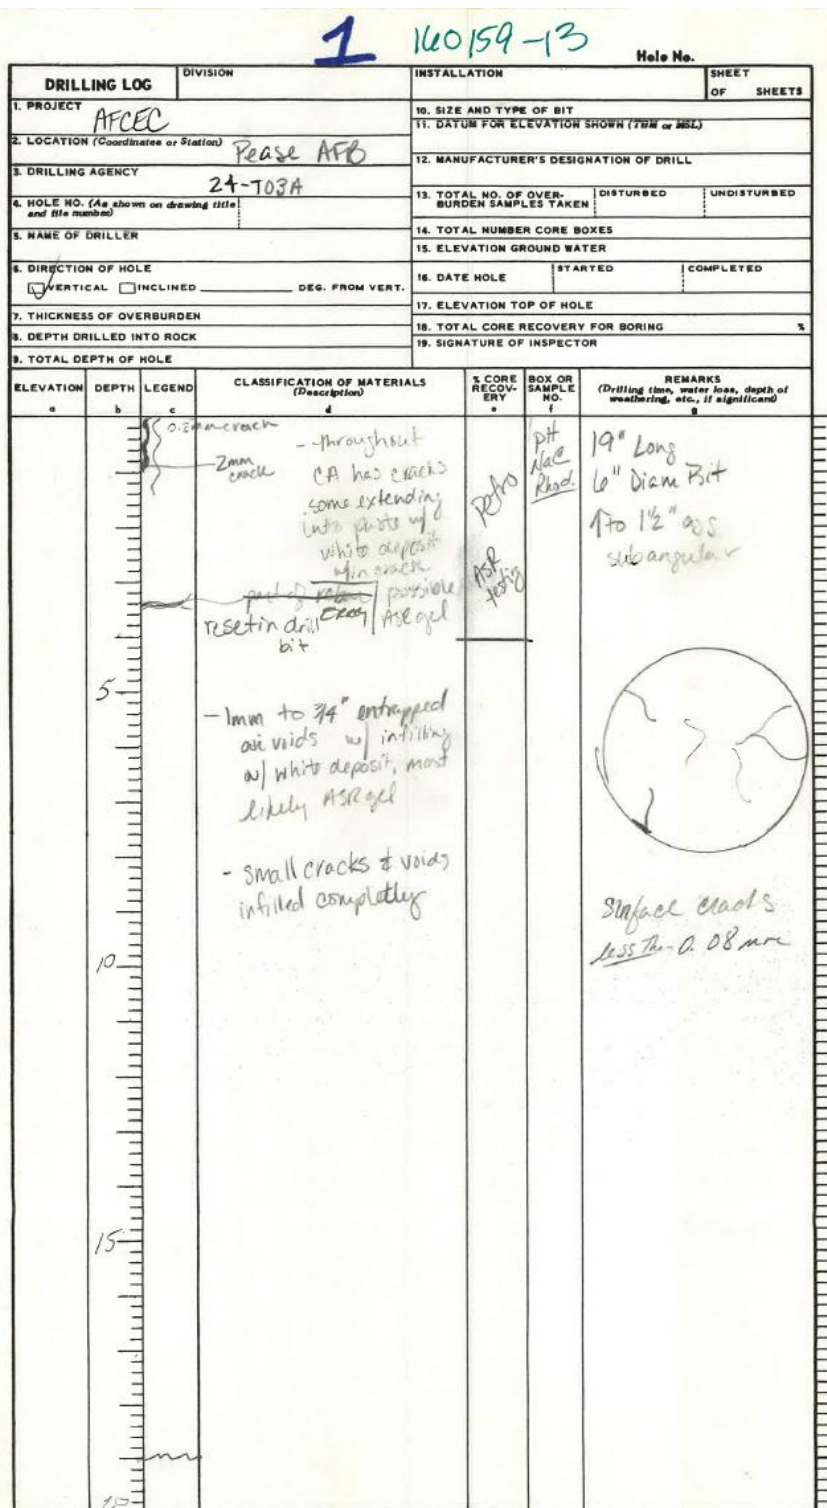 1 160159-13
Hole No.
DRILLING LOG
DIVISION
INSTALLATION
SHEET
OF SHEETS
1. PROJECT
AFCEC
2. LOCATION (Coordinates or Station)
Pease AFB
3. DRILLING AGENCY
24-T03A
4. HOLE NO. (As shown on drawing title and file number)
5. NAME OF DRILLER
6. DIRECTION OF HOLE
VERTICAL INCLINED DEG. FROM VERT.
7. THICKNESS OF OVERBURDEN
8. DEPTH DRILLED INTO ROCK
9. TOTAL DEPTH OF HOLE
10. SIZE AND TYPE OF BIT
11. DATUM FOR ELEVATION SHOWN (TBM or MSL)
12. MANUFACTURER'S DESIGNATION OF DRILL
13. TOTAL NO. OF OVER-
BURDEN SAMPLES TAKEN
DISTURBED
UNDISTURBED
14. TOTAL NUMBER CORE BOXES
15. ELEVATION GROUND WATER
16. DATE HOLE
STARTED
COMPLETED
17. ELEVATION TOP OF HOLE
18. TOTAL CORE RECOVERY FOR BORING %
19. SIGNATURE OF INSPECTOR
ELEVATION
a
DEPTH
b
LEGEND
c
CLASSIFICATION OF MATERIALS
(Description)
d
% CORE
RECOV-
ERY
e
BOX OR
SAMPLE
NO.
f
REMARKS
(Drilling time, water loss, depth of
weathering, etc., if significant)
g
crack
2mm
crack
- throughout
CA has cracks
some extending
into paste w/
white deposit
w/in crack
possible
ASR gel
part of
reset in drill
bit
- 1mm to 3/4" entrapped
air voids w/ infilling
w/ white deposit, most
likely ASR gel
- Small cracks & voids
infilled completly
Petro
ASR
testig
pH
NaC
Rhod.
19" Long
6" Diam Bit
↑to 1 1/2" ags
subangular
Surface cracks
less than 0.08 mm
5
10
15